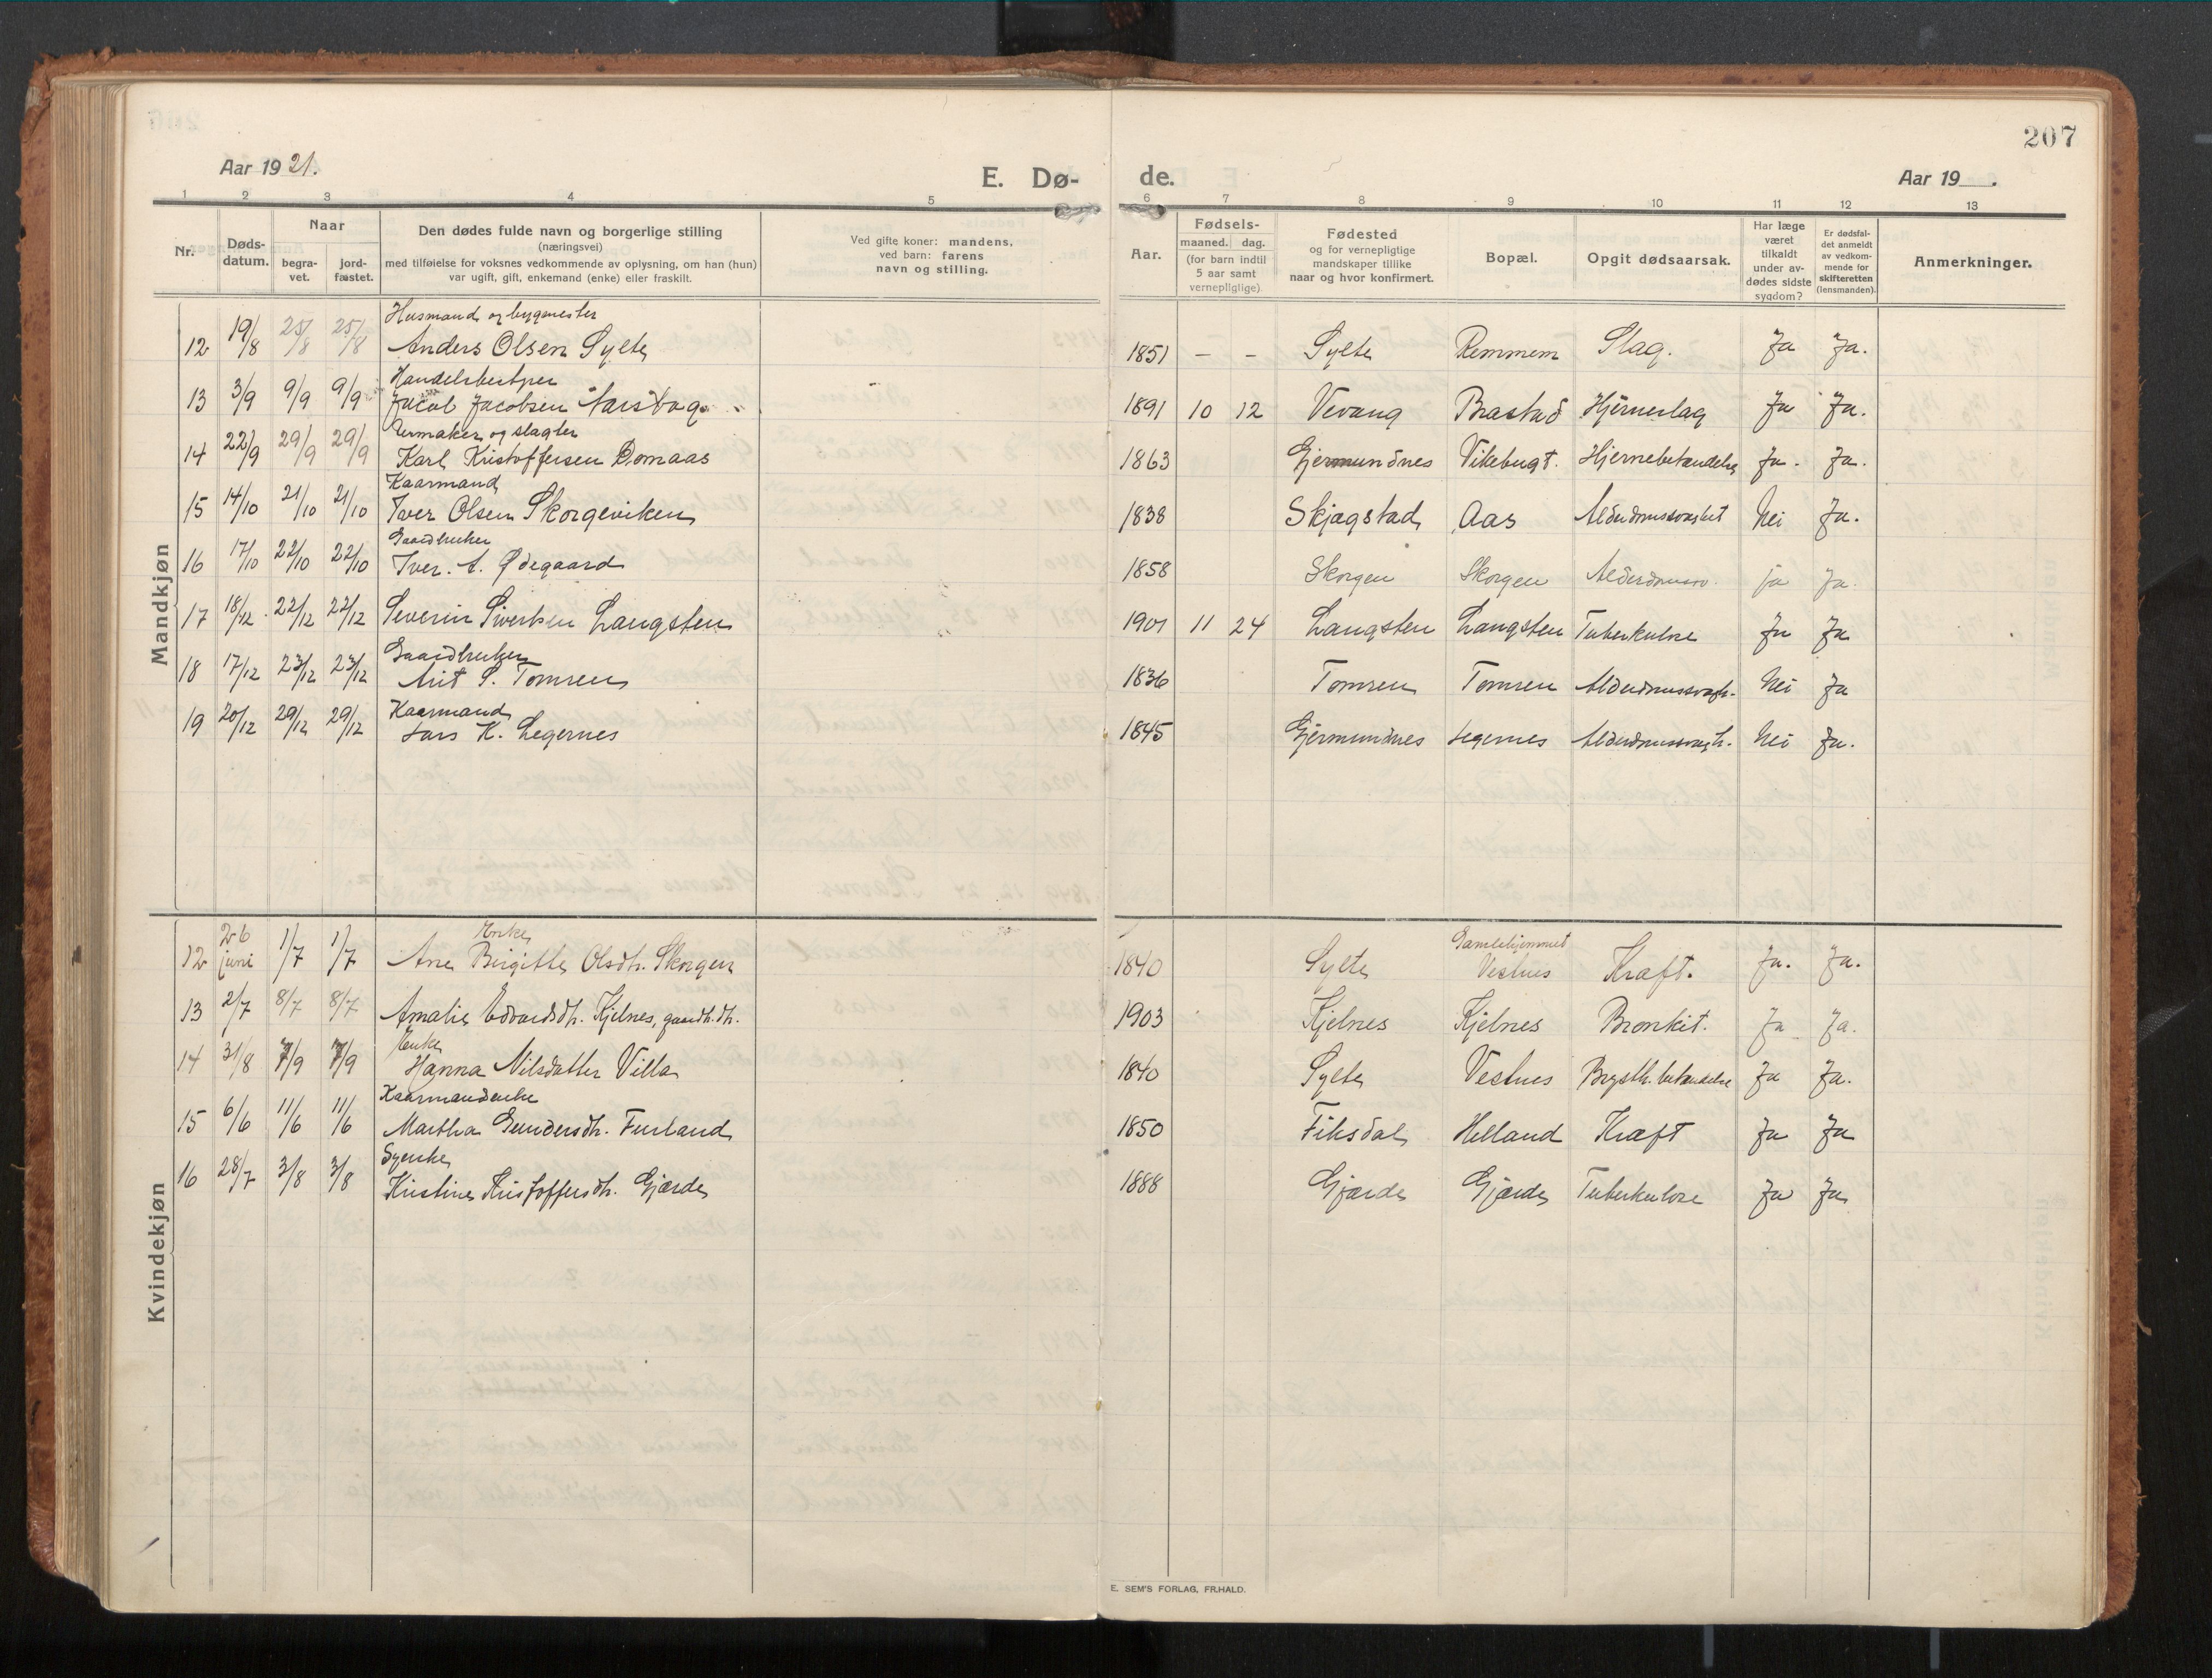 207
Aar 1921.
E. Dø-
de.
Aar 19 .
1 2 3 4 5 6 7 8 9 10 11 12 13
Nr.
Døds-
datum.
Naar
begra-
vet.
jord-
fæstet.
Den dødes fulde navn og borgerlige stilling
(næringsvei)
med tilføielse for voksnes vedkommende av oplysning, om han (hun)
var ugift, gift, enkemand (enke) eller fraskilt.
Ved gifte koner: mandens,
ved barn: farens
navn og stilling.
Aar.
Fødsels-
maaned. dag.
(for barn indtil
5 aar samt
vernepligtige)
Fødested
og for vernepligtige
mandskaper tillike
naar og hvor konfirmert.
Bopæl.
Opgit dødsaarsak.
Har læge
været
tilkaldt
under av-
dødes sidste
sygdom?
Er dødsfal-
det anmeldt
av vedkom-
mende for
skifteretten
(lensmanden).
Anmerkninger.
Mandkjøn
Husmand og bygmester
12 19/8 25/8 25/8 Anders Olsen Sylte 1851 – – Sylte Remmem Slag. Ja Ja.
13 3/9 9/9 9/9 Jacob Jacobsen 1891 10 12 Vevang Brastad Hjerneslag Ja Ja.
Urmaker og slagter
14 22/9 29/9 29/9 Karl Kristoffersen Domaas 1863 Gjermundnes Vikebugt. Hjernebetændelse Ja. Ja.
Kaarmand
15 14/10 21/10 21/10 Iver Olsen Skorgeviken 1838 Skjagstad Aas Alderdomssvakhet Nei Ja.
Gaardbruker
16 17/10 22/10 22/10 Iver. A. Ødegaard 1858 Skorgen Skorgen Alderdomssv. ja Ja.
17 18/12 22/12 22/12 Severin Sivertsen Langsten 1901 11 24 Langsten Langsten Tuberkulose Ja Ja
Gaardbruker
18 17/12 23/12 23/12 S. Tomren 1836 Tomren Tomren Alderdomssvagh. Nei Ja
Kaarmand
19 20/12 29/12 29/12 Lars K. Legernes 1845 Gjermundnes Legernes Alderdomssvagh. Nei Ja.
Kvindekjøn
Enke Gamlehjemmet
12 26 juni 1/7 1/7 Ane Birgitte Olsdtr. Skorgen 1840 Sylte Vestnes Kræft. Ja. Ja.
13 2/7 8/7 8/7 Amalie Edvardsdtr. Kjelnes, gaardb. dtr. 1903 Kjelnes Kjelnes Bronkit. Ja Ja.
Enke
14 31/8 7/9 7/9 Hanna Nilsdatter Villa 1840 Sylte Vestnes Brysth. betændelse Ja Ja.
Kaarmandenke
15 6/6 11/6 11/6 Martha Gundersdtr. Furland 1850 Fiksdal Helland Kræft Ja Ja
16 28/7 3/8 3/8 Kristine Kristoffersdtr. Gjærde 1888 Gjærde Gjærde Tuberkulose Ja Ja
E. SEM'S FORLAG, FR.HALD.